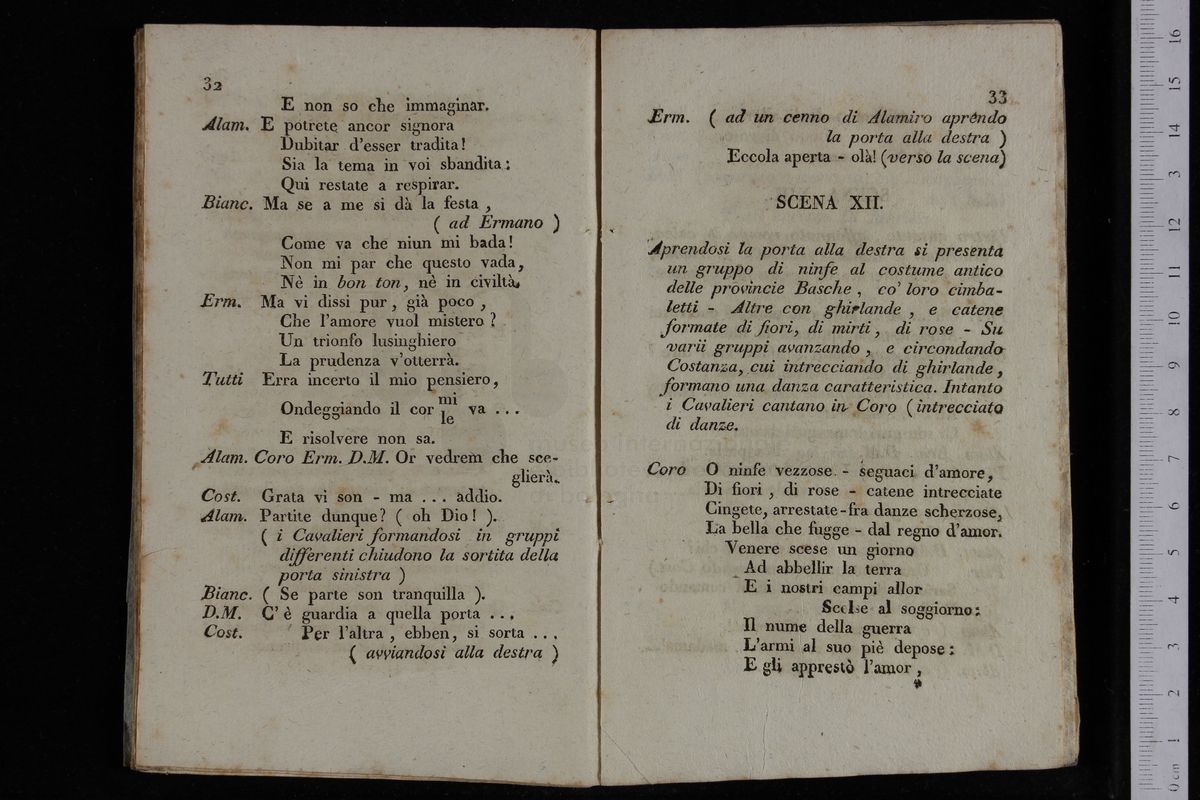 32
E non so che immaginar.
Alam. E potrete ancor signora
Dubitar d'esser tradita!
Sia la tema in voi sbandita:
Qui restate a respirar.
Bianc. Ma se a me si dà la festa ,
( ad Ermano )
Come va che niun mi bada!
Non mi par che questo vada,
Nè in bon ton, nè in civiltà.
Erm. Ma vi dissi pur , già poco ,
Che l'amore vuol mistero ?
Un trionfo lusinghiero
La prudenza v'otterrà.
Tutti Erra incerto il mio pensiero,
mi
Ondeggiando il cor le va ...
E risolvere non sa.
Alam. Coro Erm. D.M. Or vedrem che sce-
glierà.
Cost. Grata vi son - ma ... addio.
Alam. Partite dunque? ( oh Dio! ).
( i Cavalieri formandosi in gruppi
differenti chiudono la sortita della
porta sinistra )
Bianc. ( Se parte son tranquilla ).
D.M. C' è guardia a quella porta ...
Cost. Per l'altra , ebben, si sorta ...
( avviandosi alla destra )
33
Erm. ( ad un cenno di Alamiro aprendo
la porta alla destra )
Eccola aperta - olà! (verso la scena)
SCENA XII.
Aprendosi la porta alla destra si presenta
un gruppo di ninfe al costume antico
delle provincie Basche , co' loro cimba-
letti - Altre con ghirlande , e catene
formate di fiori, di mirti, di rose - Su
varii gruppi avanzando , e circondando
Costanza, cui intrecciando di ghirlande,
formano una danza caratteristica. Intanto
i Cavalieri cantano in Coro (intrecciato
di danze.
Coro O ninfe vezzose - seguaci d'amore,
Di fiori , di rose - catene intrecciate
Cingete, arrestate-fra danze scherzose,
La bella che fugge - dal regno d'amor.
Venere scese un giorno
Ad abbellir la terra
E i nostri campi allor
Scelse al soggiorno:
Il nume della guerra
L'armi al suo piè depose:
E gli apprestò l'amor ,
*